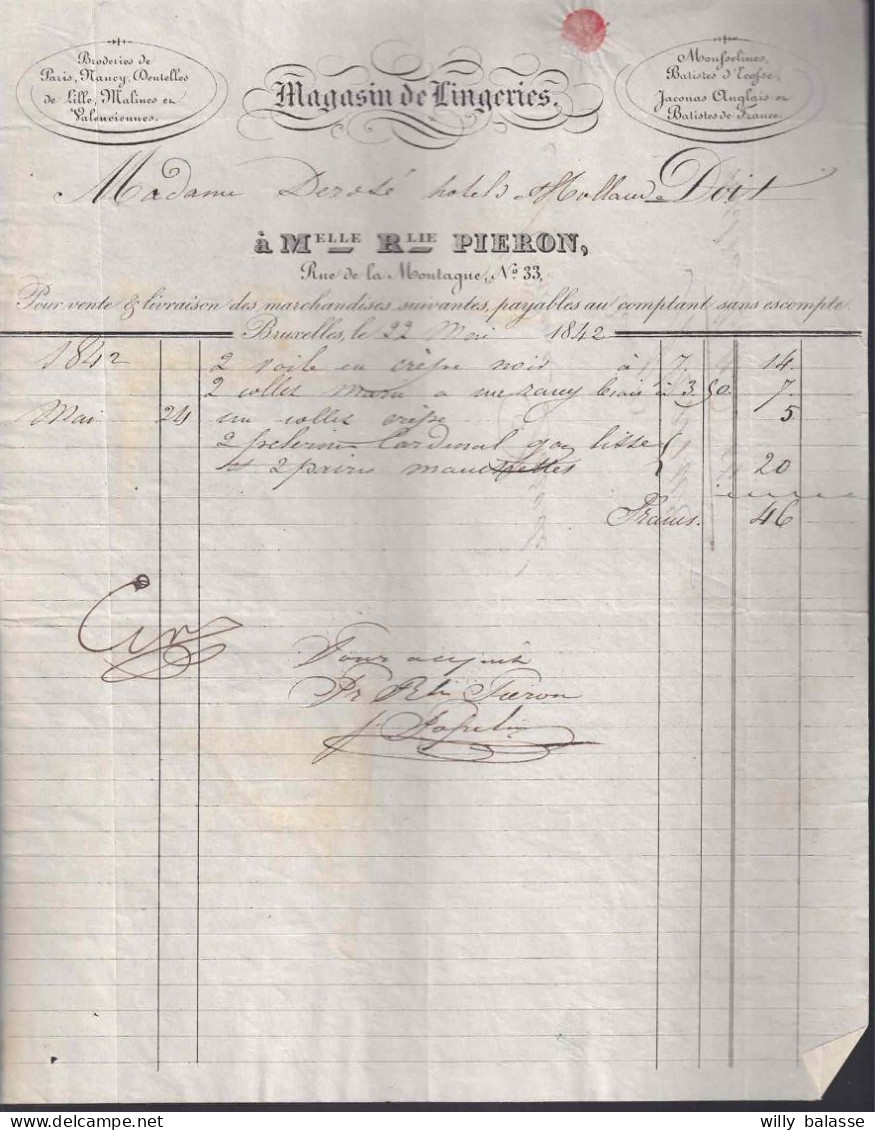 Broderies de
Paris, Nancy, Dentelles
de Lille, Malines et
Valenciennes.
Magasin de Lingeries.
Mousselines,
Batistes d'Ecosse,
Jaconas Anglais et
Batistes de France.
Madame Derosé hotels Hollande Doit
à MELLE RLIE PIERON,
Rue de la Montagne, No 33,
Pour vente & livraison des marchandises suivantes, payables au comptant sans escompte.
Bruxelles, le 22 Mai 1842
1842 2 voile en crèpe noir à 7. 14.
2 collets a 3.50. 7.
Mai 24 un collet crèpe 5
2 Cardinal lisse
2 paires 20
Francs. 46
Pour acquit
Pr Rlie Pieron
willy balasse